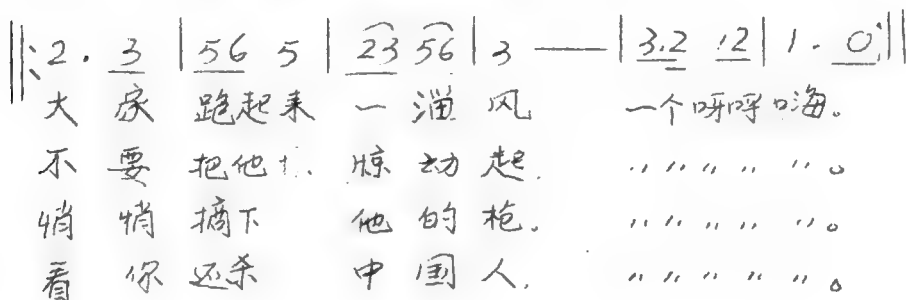 ‖: 2. 3 | 56 5 | 23 56 | 3 — | 3.2 12 | 1. 0 :‖
大家跑起来一溜风 一个呀呼嗨。
不要把他 惊动起. 〃〃〃〃〃。
悄悄摘下 他的枪。 〃〃〃〃〃。
看你还杀 中国人. 〃〃〃〃〃。